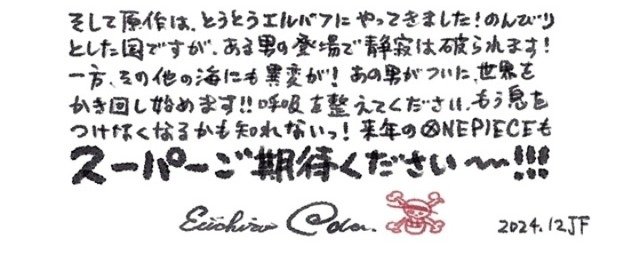 そして原作は、とうとうエルバフにやってきました!のんびり
とした国ですが、ある男の登場で静寂は破られます!
一方、その他の海にも異変が!あの男がついに、世界を
かき回し始めます!!呼吸を整えてください、もう息を
つけなくなるかも知れないっ!来年のONEPIECEも
スーパーご期待ください〜〜!!!
Eiichiro Oda. 2024.12JF